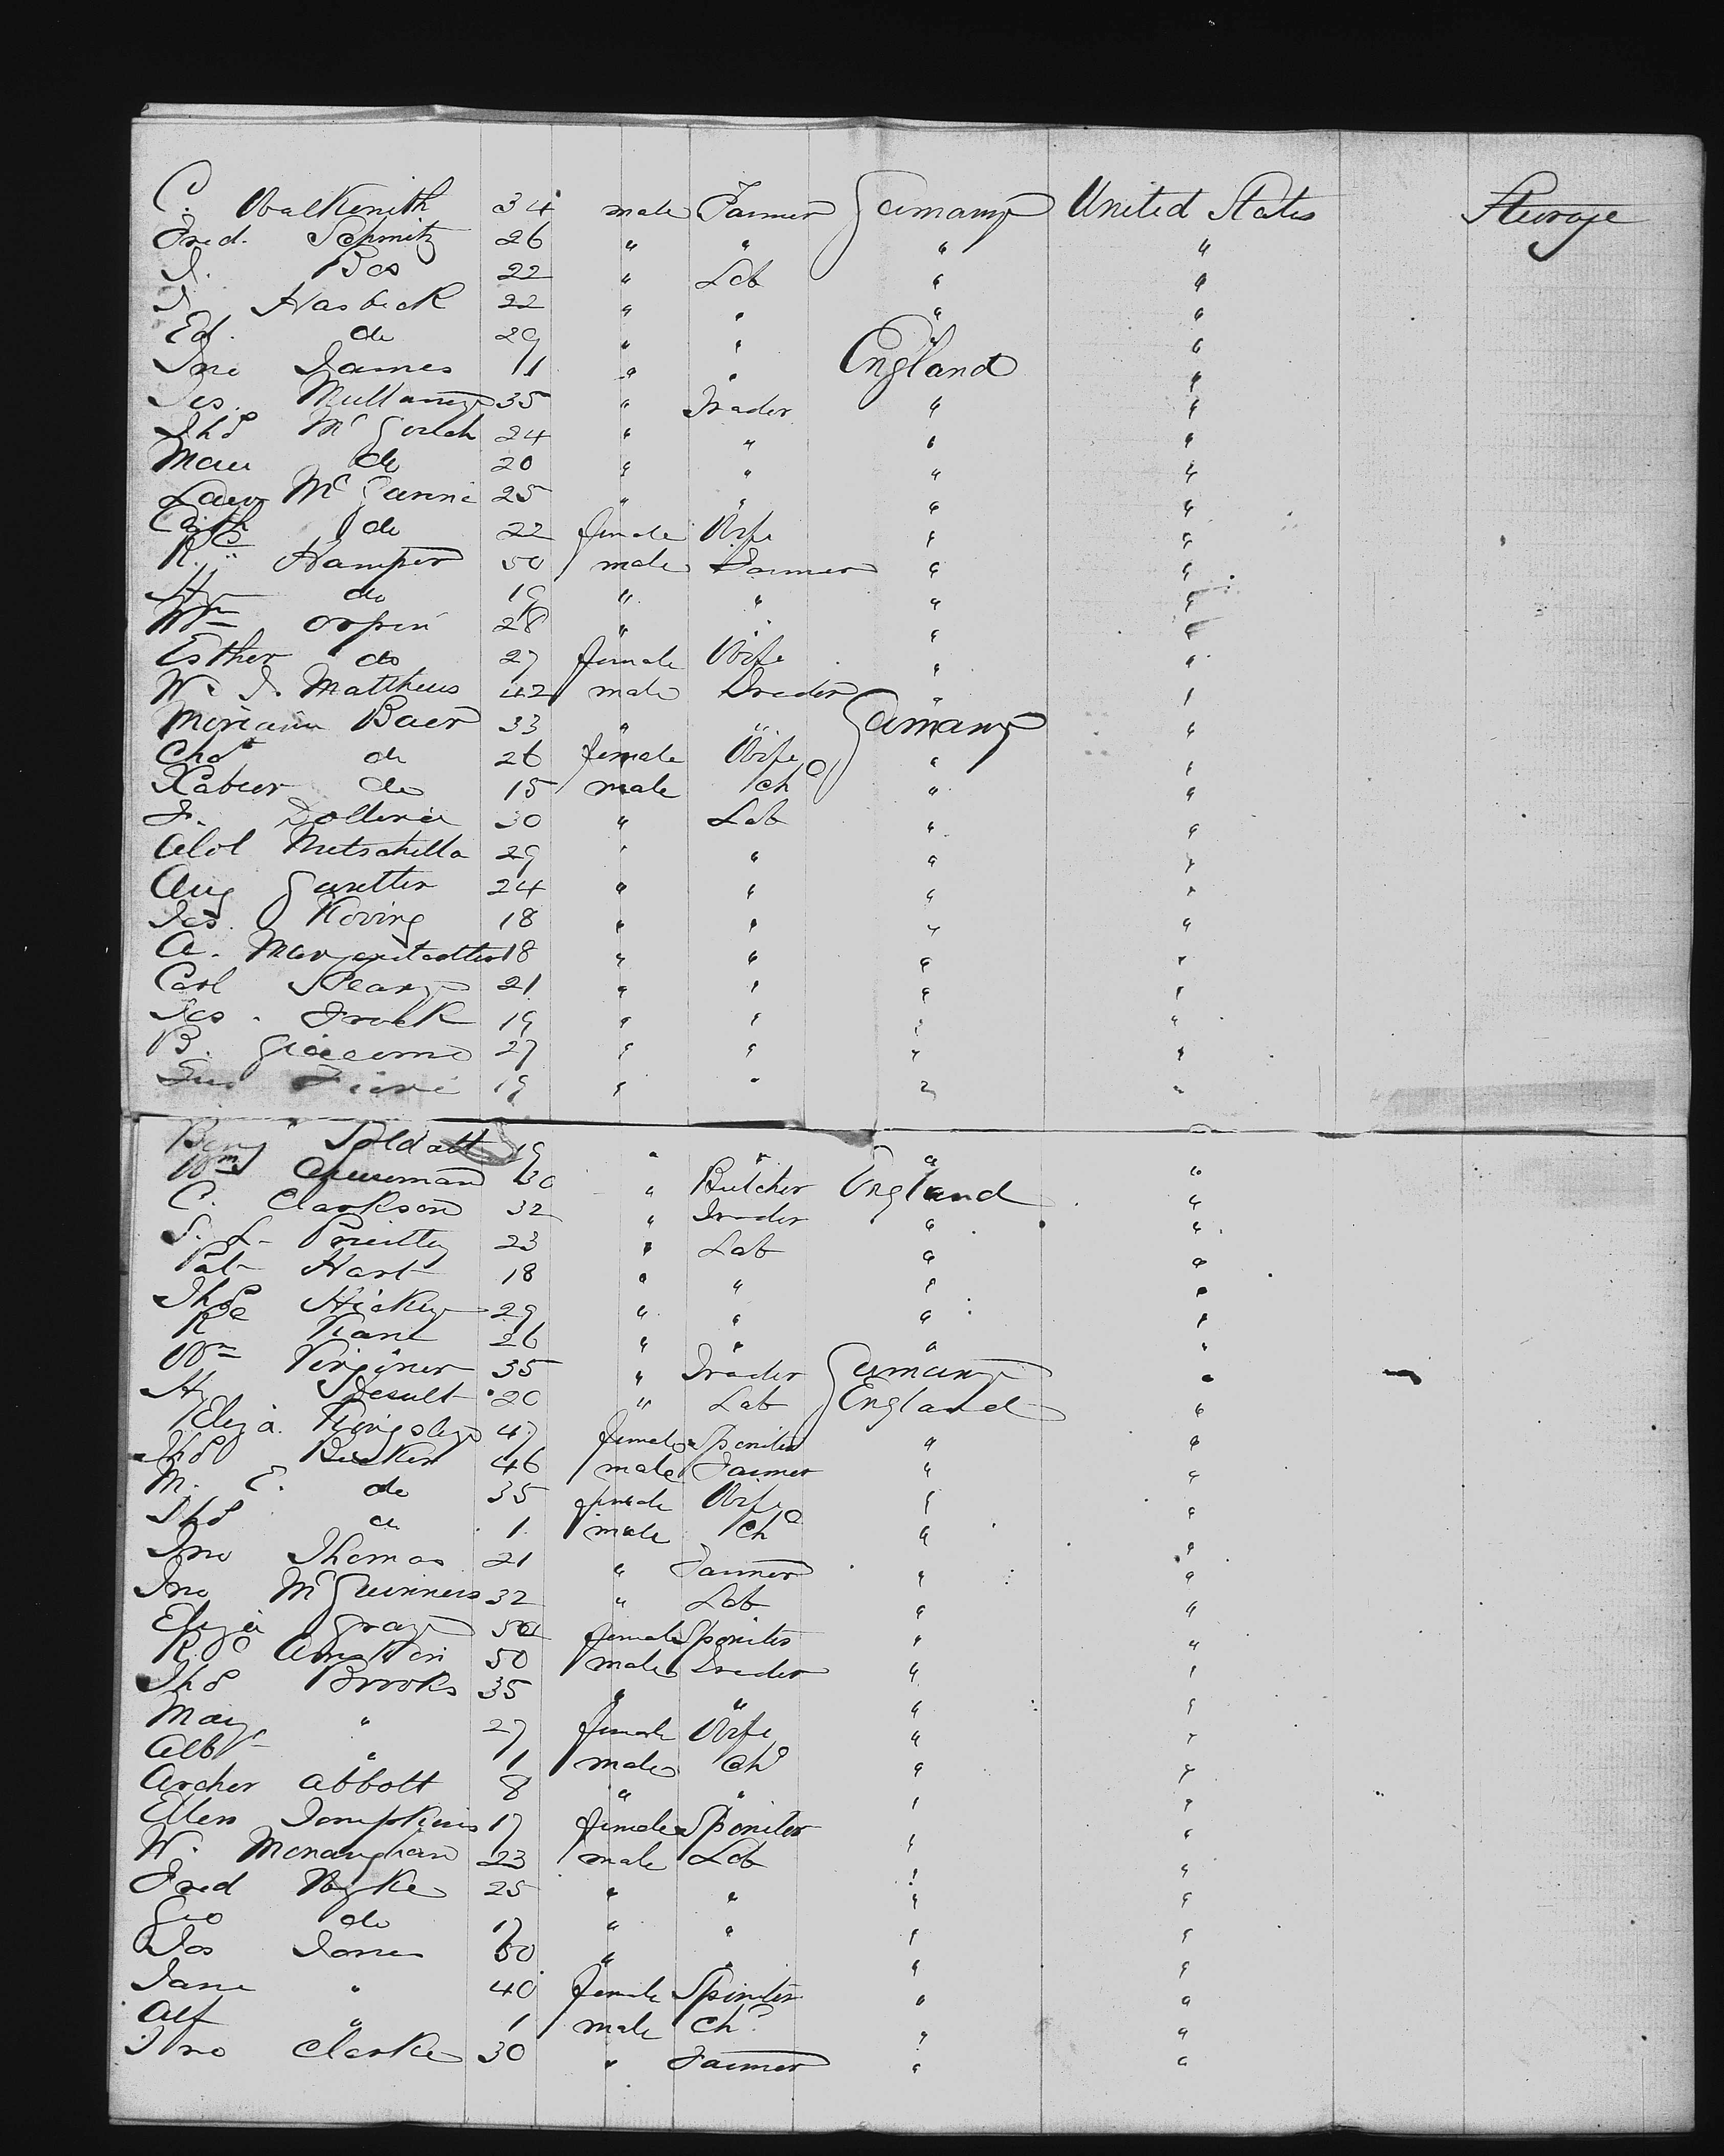 C. Walkenith 34 male Farmer Germany United States Steerage
Fred. Schmitz 26 " " " "
J. Bos 22 " Lab " "
J. Hasbeck 22 " " " "
Ed. do 29 " " " "
Jno James 11 " " England "
Jas. Mullaney 35 " Trader " "
Thos McGouch 24 " " " "
do 20 " " " "
25 " " " "
Cath. do 22 female Wife " "
R. Hamper 50 male Farmer " "
Hy do 19 " " " "
Wm Orpin 28 " " " "
Esther do 27 female Wife " "
Wm J. Matthews 42 male Trader " "
Baer 33 " " Germany "
do 26 female Wife " "
do 15 male Ch " "
30 " Lab " "
Nutschilla 29 " " " "
Aug 24 " " " "
Jos. Koving 18 " " " "
A. 18 " " " "
Carl 21 " " " "
Jos. Frock 19 " " " "
B. Giacomo 27 " " " "
19 " " " "
Benj Soldatt 19 " " " "
Wm 30 " Butcher England "
C. Clarkson 32 " Trader " "
S. L. 23 " Lab " "
Pat Hart 18 " " " "
Thos Hickey 29 " " " "
26 " " " "
Wm Virginer 35 " Trader Germany "
Hy 20 " Lab England "
Eliza. Kingsley 47 female Spinster " "
Thos Becker 46 male Farmer " "
M. E. do 35 female Wife " "
Thos do 1 male Ch " "
Jno Thomas 21 " Farmer " "
Jno McGuinness 32 " Lab " "
Eliza Gray 50 female Spinster " "
50 male Trader " "
Thos Brooks 35 " " " "
Mary " 27 female Wife " "
Albt " 1 male Ch " "
Archer Abbott 8 " " " "
Ellen Tompkins 17 female Spinster " "
W. Monaghan 23 male Lab " "
Fred 25 " " " "
Geo do 17 " " " "
Jos Jones 50 " " " "
Jane " 40 female Spinster " "
Alf " 1 male Ch " "
Jno Clarke 30 " Farmer " "